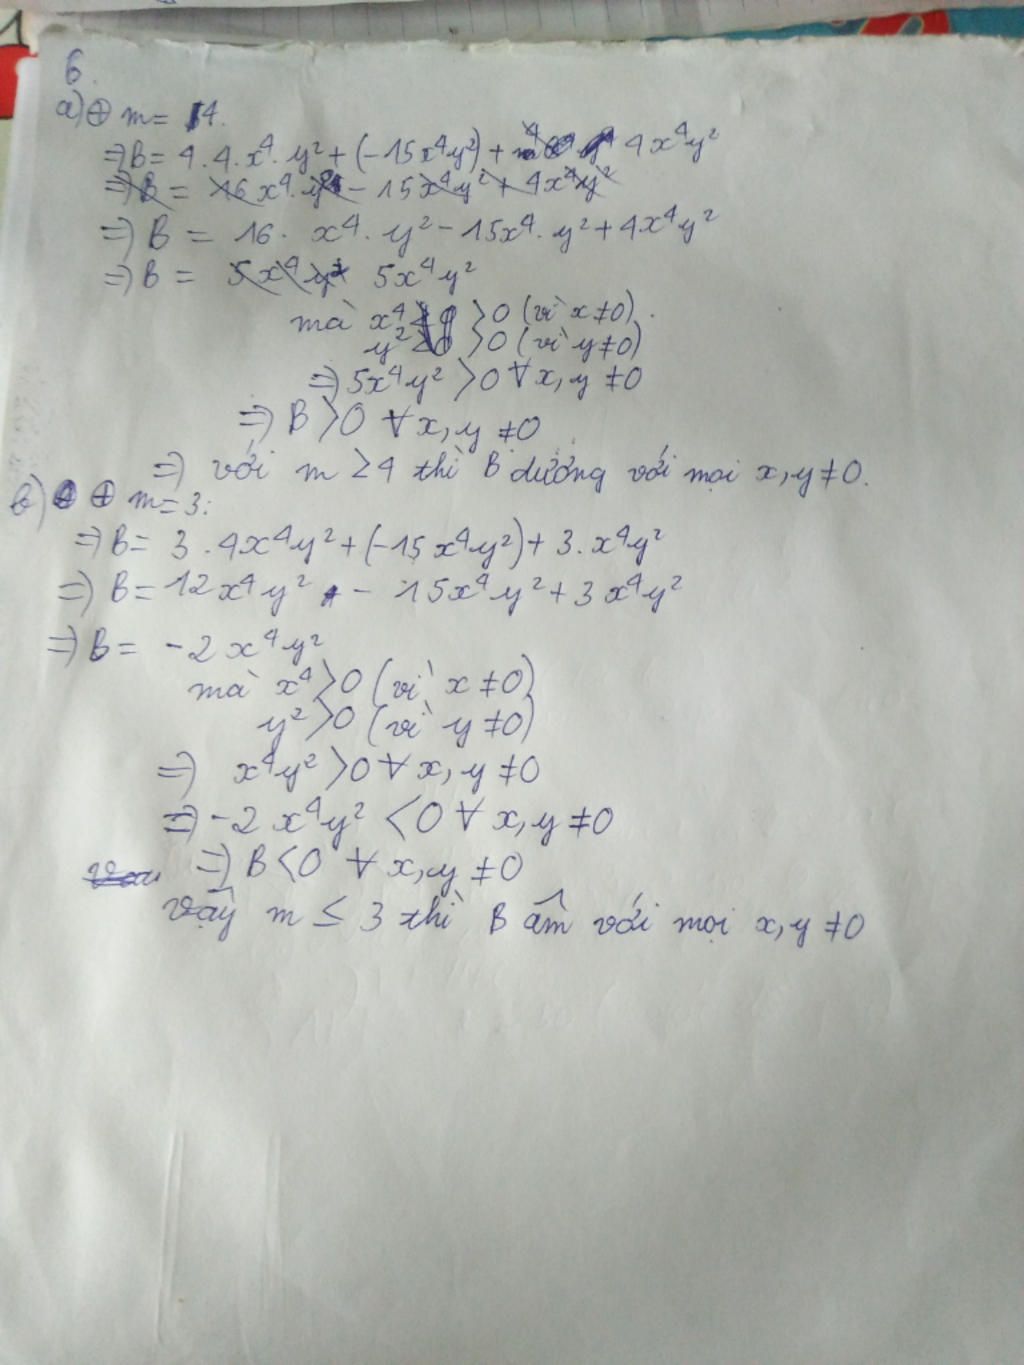 6.
a) ⊕ m = 4.
⇒ B = 4.4.x⁴.y² + (-15x⁴y²) + 4x⁴y²
⇒ B = 16x⁴. - 15x⁴y² + 4x⁴y²
⇒ B = 16. x⁴. y² - 15x⁴. y² + 4x⁴y²
⇒ B = 5x⁴y² 5x⁴y²
mà x⁴ > 0 (vì x ≠ 0).
y² > 0 (vì y ≠ 0)
⇒ 5x⁴y² > 0 ∀ x, y ≠ 0
⇒ B > 0 ∀ x, y ≠ 0
⇒ với m ≥ 4 thì B dương với mọi x, y ≠ 0.
b) ⊕ m = 3:
⇒ B = 3.4x⁴y² + (-15x⁴y²) + 3.x⁴y²
⇒ B = 12x⁴y² - 15x⁴y² + 3x⁴y²
⇒ B = -2x⁴y²
mà x⁴ > 0 (vì x ≠ 0)
y² > 0 (vì y ≠ 0)
⇒ x⁴y² > 0 ∀ x, y ≠ 0
⇒ -2x⁴y² < 0 ∀ x, y ≠ 0
⇒ B < 0 ∀ x, y ≠ 0
vậy m ≤ 3 thì B âm với mọi x, y ≠ 0